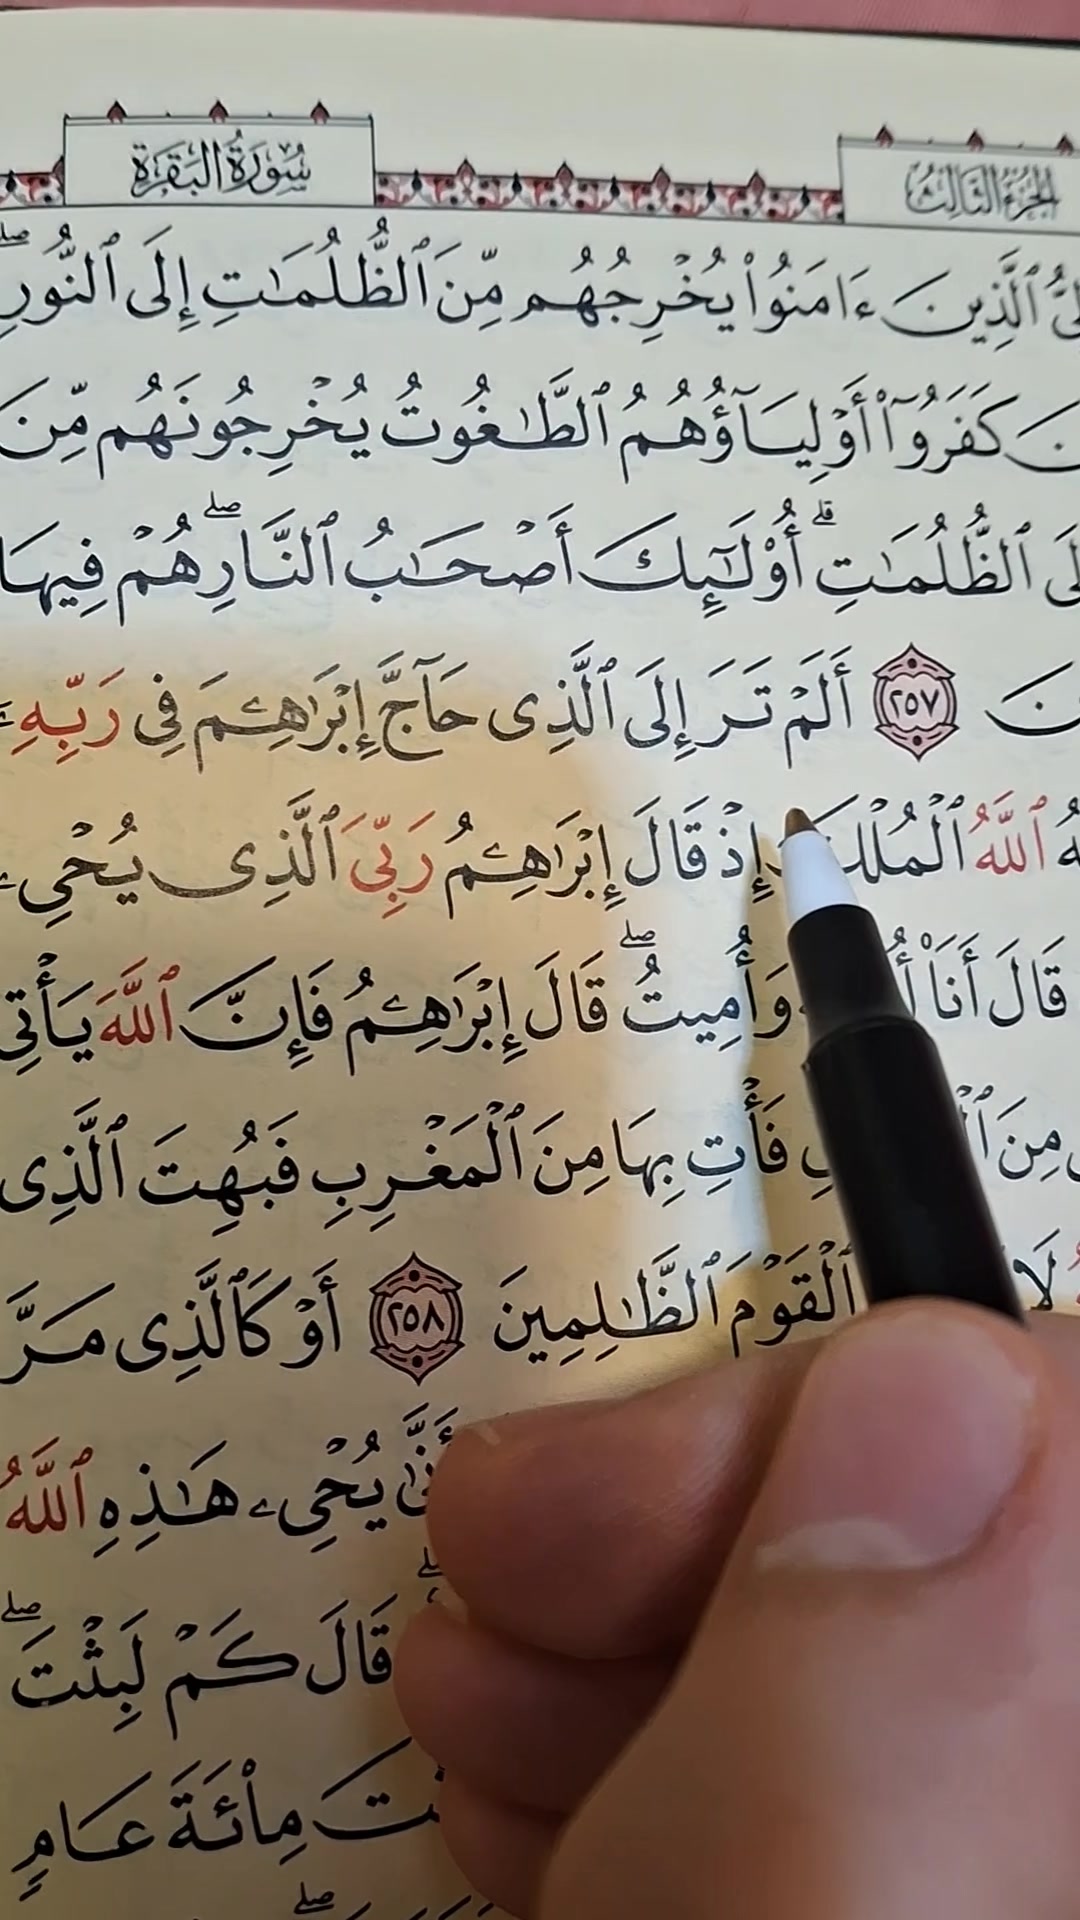 الجزء الثالث
سورة البقرة
ٱلَّذِينَ ءَامَنُوا۟ يُخْرِجُهُم مِّنَ ٱلظُّلُمَـٰتِ إِلَى ٱلنُّورِ ۖ
كَفَرُوٓا۟ أَوْلِيَآؤُهُمُ ٱلطَّـٰغُوتُ يُخْرِجُونَهُم مِّنَ
ٱلظُّلُمَـٰتِ ۗ أُو۟لَـٰٓئِكَ أَصْحَـٰبُ ٱلنَّارِ ۖ هُمْ فِيهَا
٢٥٧ أَلَمْ تَرَ إِلَى ٱلَّذِى حَآجَّ إِبْرَٰهِـۧمَ فِى رَبِّهِۦٓ
ٱللَّهُ ٱلْمُلْكَ إِذْ قَالَ إِبْرَٰهِـۧمُ رَبِّىَ ٱلَّذِى يُحْىِۦ
قَالَ أَنَا۠ وَأُمِيتُ ۖ قَالَ إِبْرَٰهِـۧمُ فَإِنَّ ٱللَّهَ يَأْتِى
مِنَ فَأْتِ بِهَا مِنَ ٱلْمَغْرِبِ فَبُهِتَ ٱلَّذِى
لَا ٱلْقَوْمَ ٱلظَّـٰلِمِينَ ٢٥٨ أَوْ كَٱلَّذِى مَرَّ
أَنَّىٰ يُحْىِۦ هَـٰذِهِ ٱللَّهُ
قَالَ كَمْ لَبِثْتَ ۖ
مِا۟ئَةَ عَامٍ